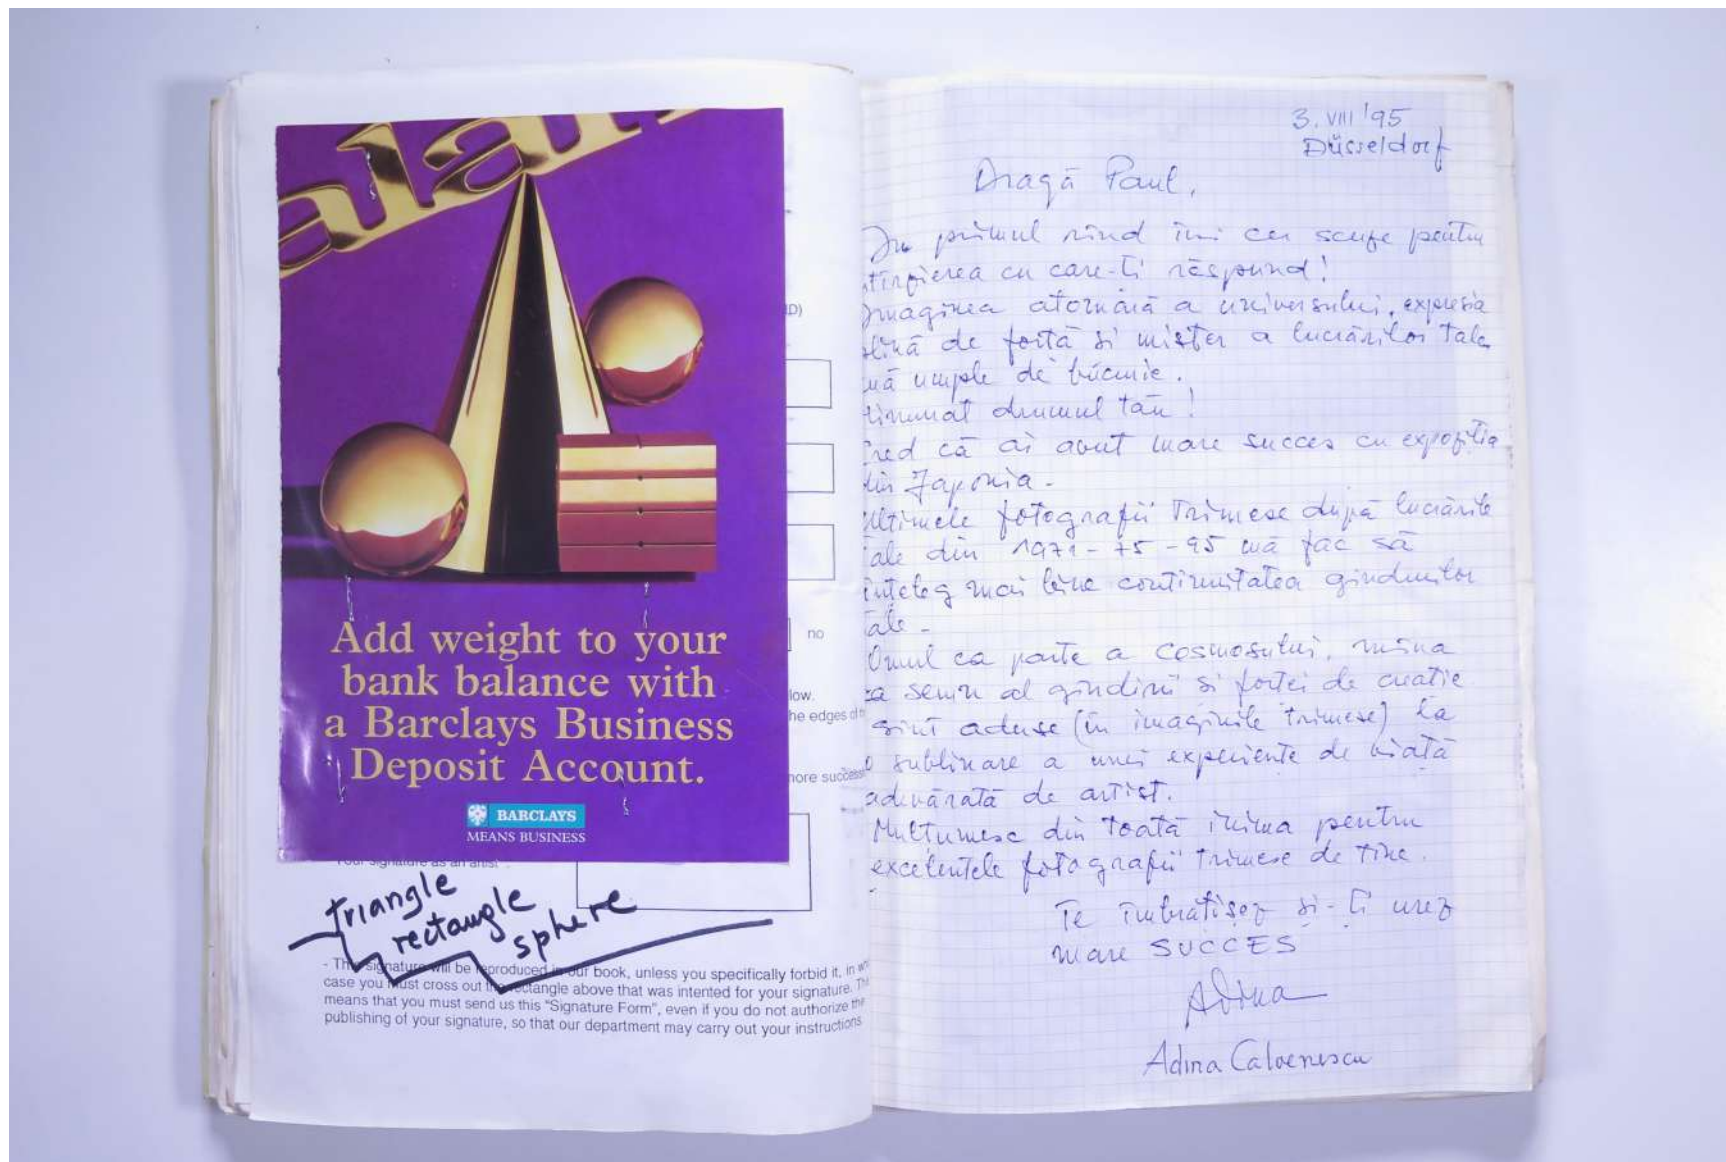 alan
Add weight to your
bank balance with
a Barclays Business
Deposit Account.
BARCLAYS
MEANS BUSINESS
D)
no
low.
he edges of
more success
Your signature as an artist
triangle
rectangle
sphere
- This signature will be reproduced in our book, unless you specifically forbid it, in
case you must cross out the rectangle above that was intented for your signature.
means that you must send us this "Signature Form", even if you do not authorize the
publishing of your signature, so that our department may carry out your instructions
3. VIII '95
Düsseldorf
Dragă Paul,
În primul rînd îmi cer scuze pentru
cu care-ți răspund!
Imaginea a universului, expresia
plină de forță si mister a lucrărilor tale
mă umple de bucurie.
drumul tău!
Cred că ai avut mare succes cu expoziția
din Japonia -
Ultimele fotografii trimese după lucrările
tale din 1971-75-95 mă fac să
înteleg mai bine continuitatea gindurilor
tale -
Omul ca parte a cosmosului, mîna
ca semn al gîndirii si forței de creatie
sînt aduse (în imaginile trimese) la
o subliniare a unei experiențe de viață
adevărată de artist.
Multumesc din toată inima pentru
excelentele fotografii trimese de tine.
Te îmbrățisez si-ți urez
mare SUCCES
Adina
Adina